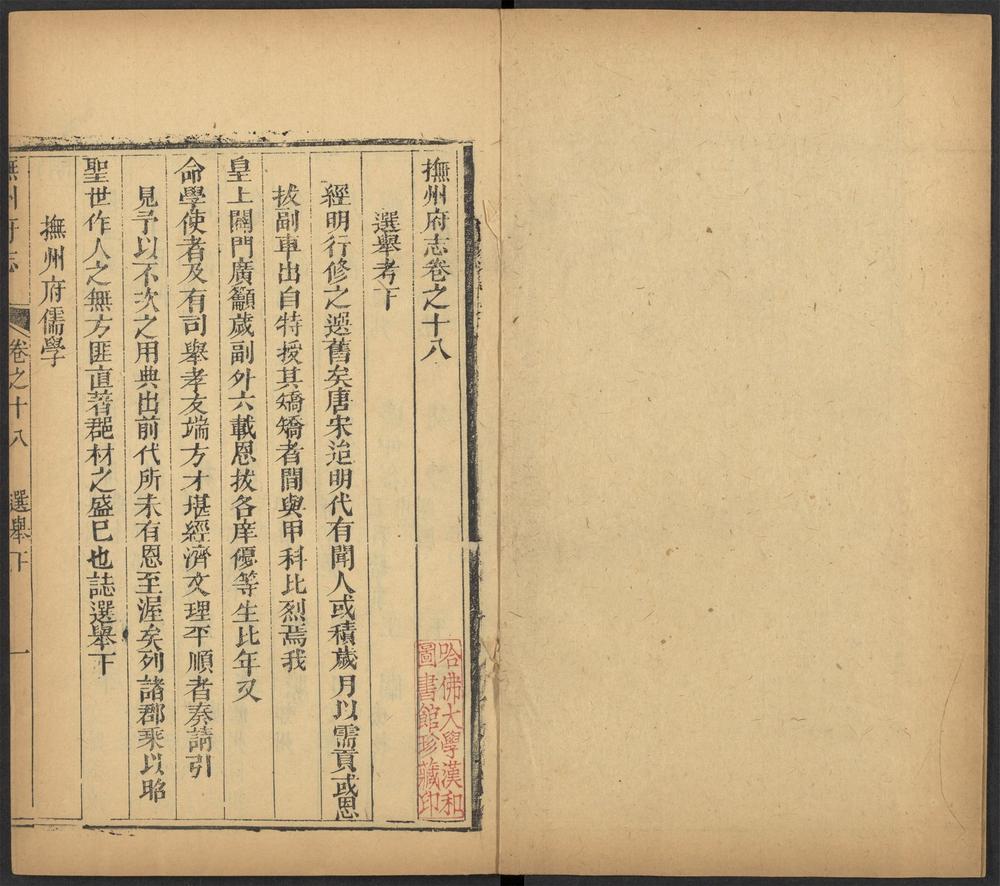 撫州府志卷之十八
選舉考下
經明行修之選舊矣唐宋迨明代有聞人或積歲月以需貢或恩
拔副車出自特授其矯矯者間與甲科比烈焉我
皇上闢門廣籲歲副外六載恩拔各庠優等生比年又
命學使者及有司舉孝友端方才堪經濟文理平順者奏請引
見予以不次之用典出前代所未有恩至渥矣列諸郡乘以昭
聖世作人之無方匪直著郡材之盛已也誌選舉下
撫州府儒學
撫州府志
卷之十八
選舉下
一
哈佛大學漢和
圖書館珍藏印